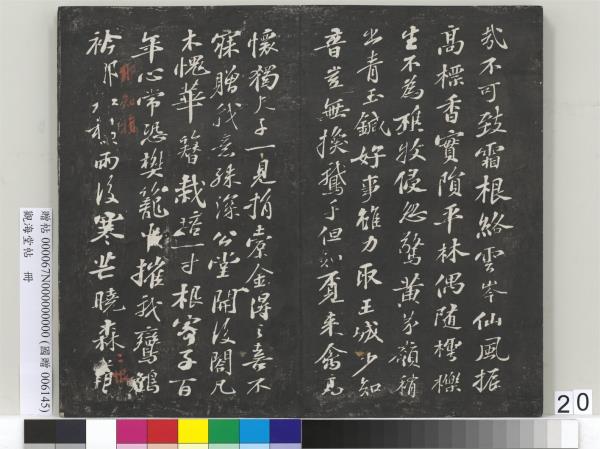 哉不可致霜根絡雲岑仙風振
高標香實隕平林偶隨樗櫟
生不為樵牧侵忽驚黃茅嶺稍
出青玉鍼好事雖力取王城少知
音豈無換鵝手但知覓來禽高
懷獨夫子一見捐橐金得之喜不
寐贈我意殊深公堂開後閣凡
木愧華簪栽培一寸根寄子百
年心常恐樊籠中摧我鸞鶴
衿誰知積雨後寒芒曉森森
贈帖 000067N000000000 (國贈 006145)
觀海堂帖 冊
20